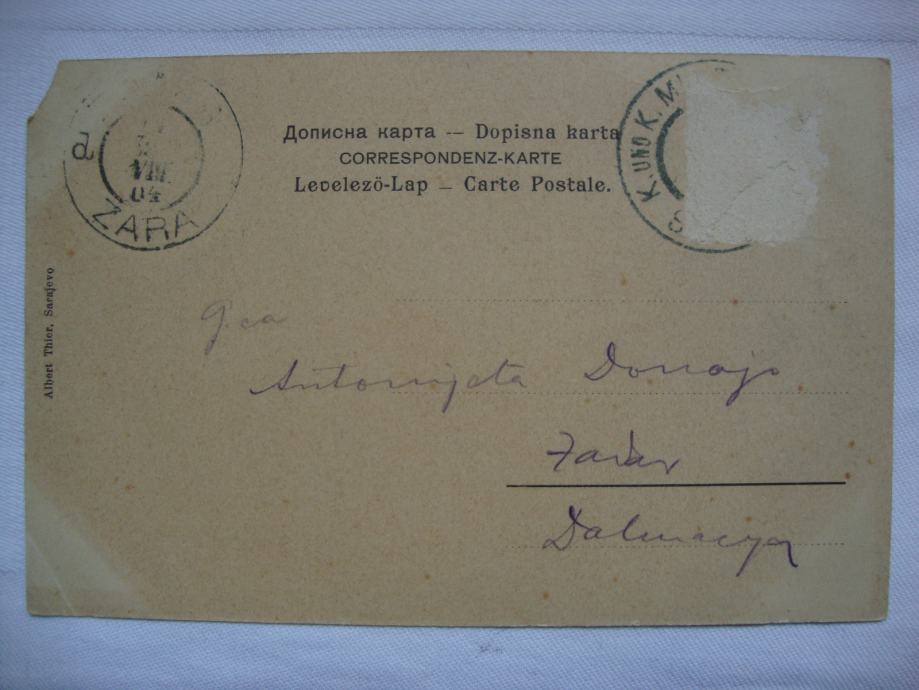 Дописна карта — Dopisna karta
CORRESPONDENZ-KARTE
Levelező-Lap — Carte Postale.
a
VIII
04
ZARA
K. UND K. MI
S
Albert Thier, Sarajevo
Gca
Antonijeta Donajo
Zadar
Dalmacija